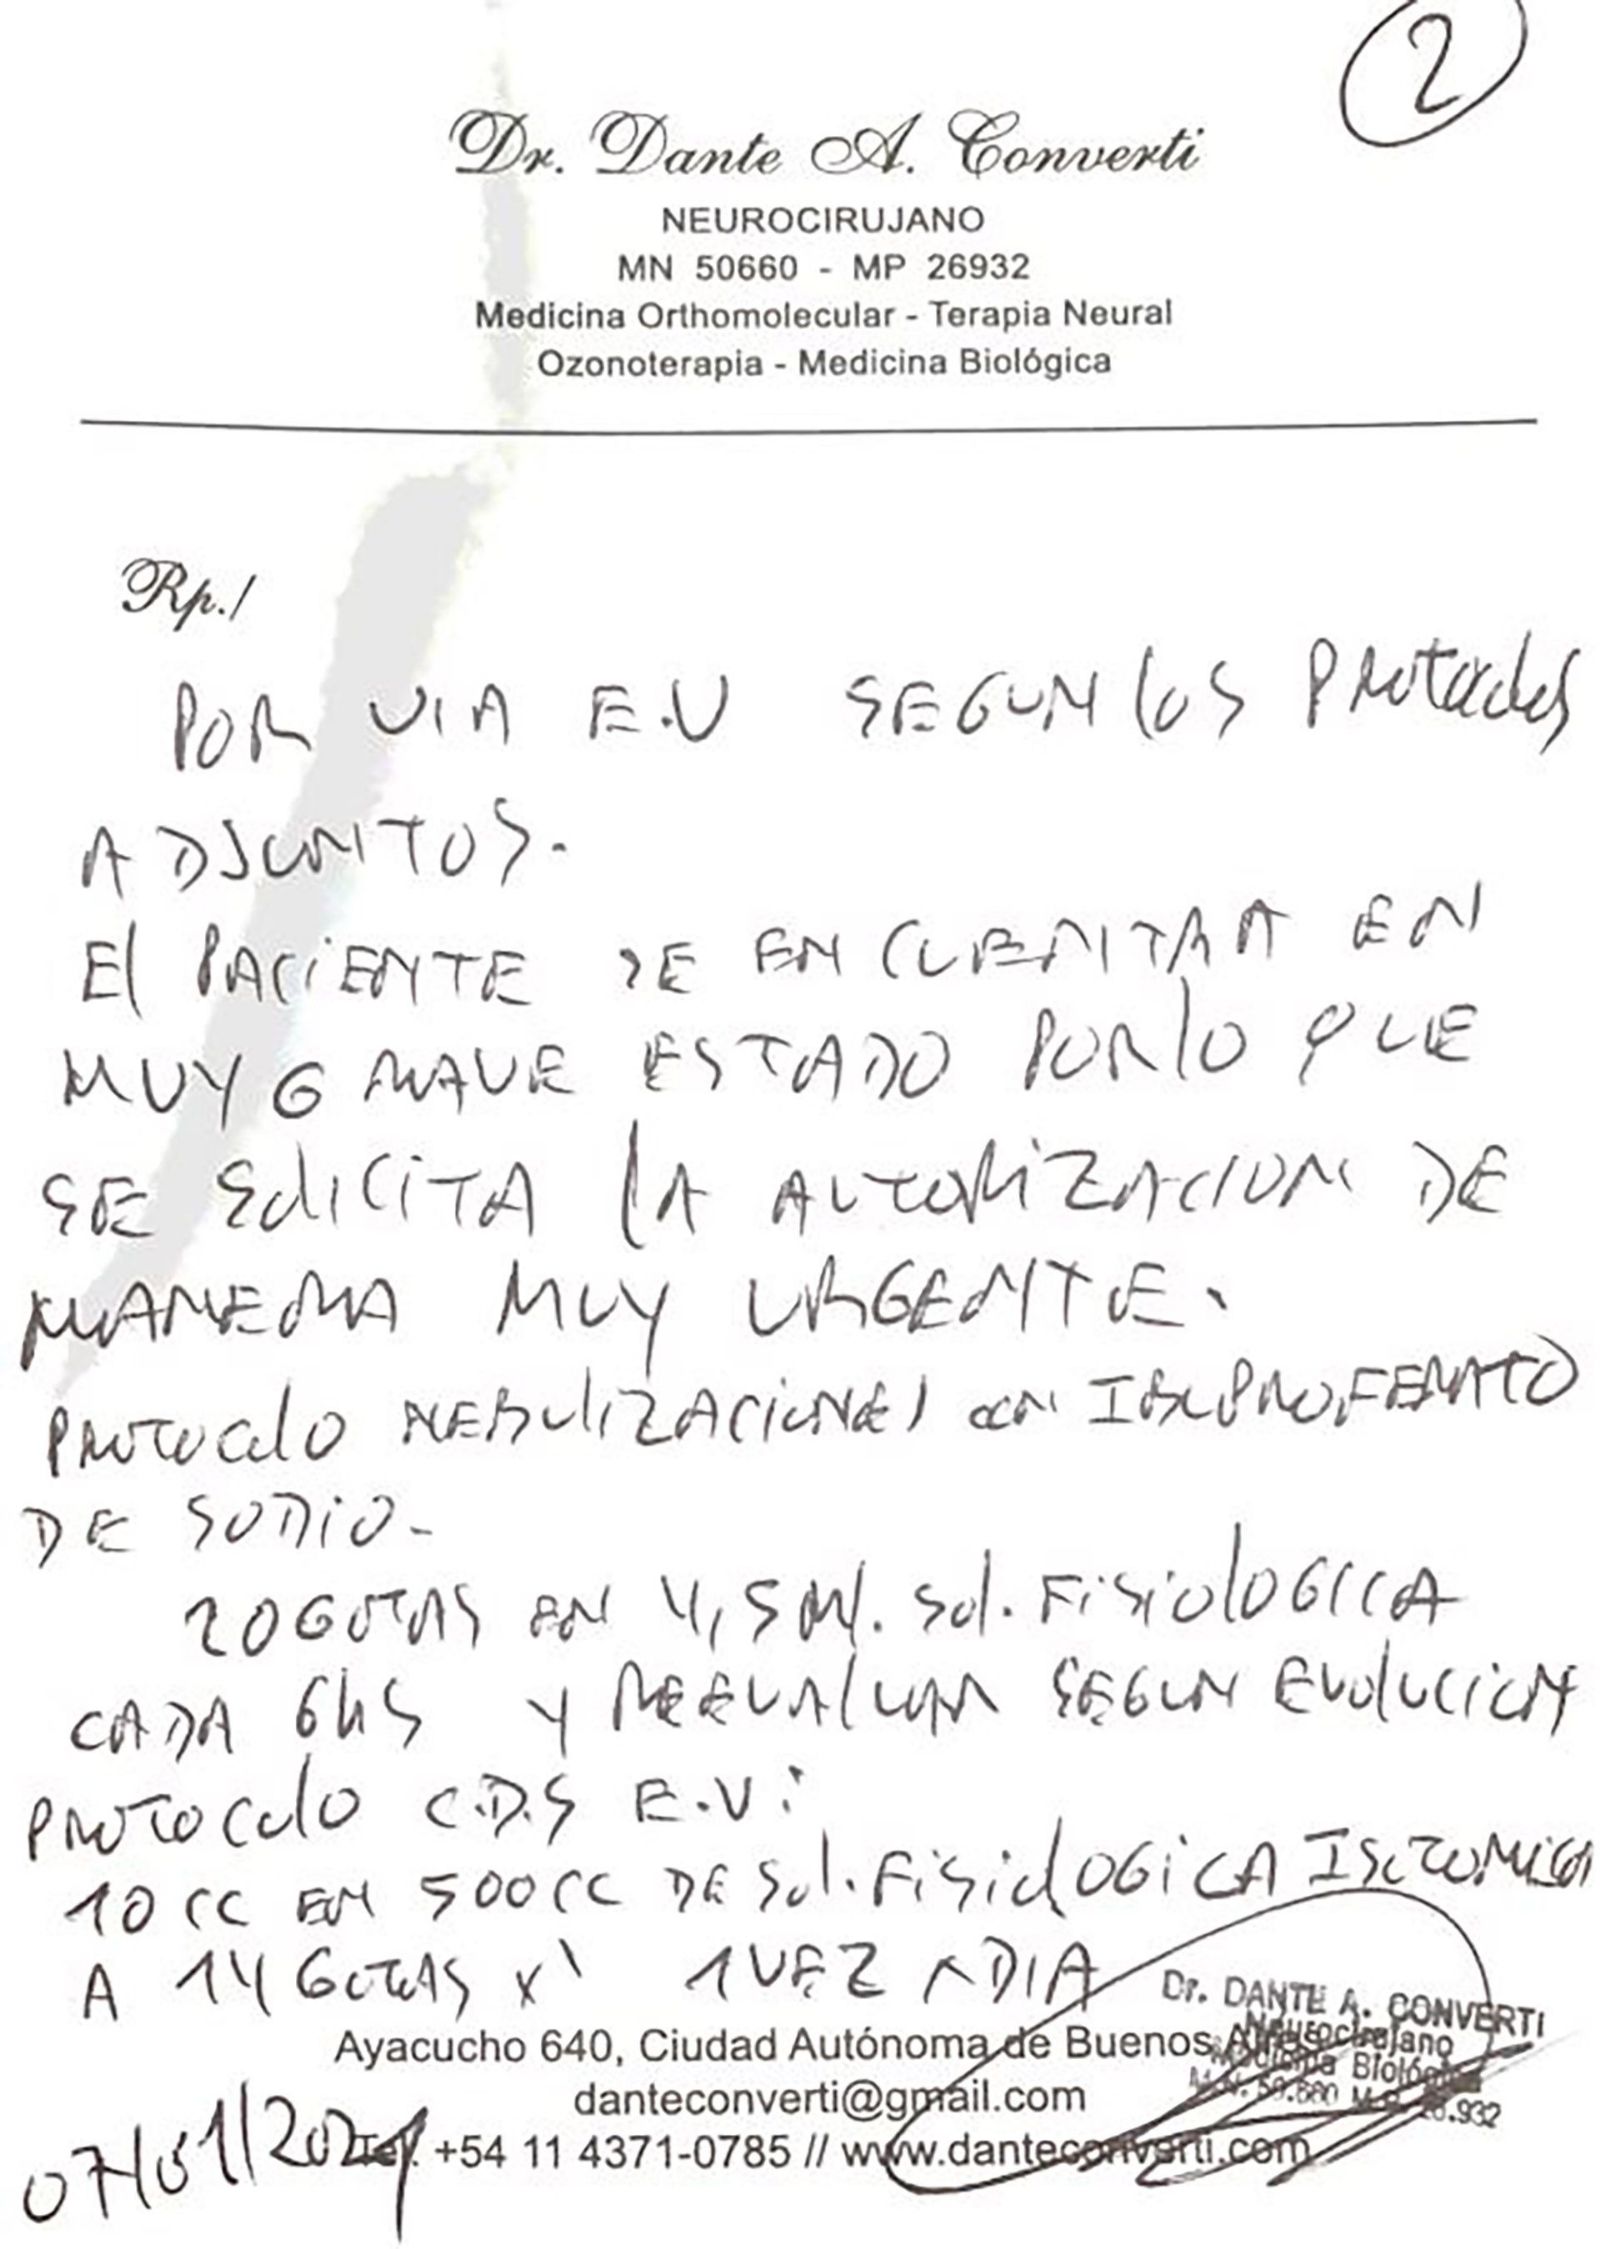 2
Dr. Dante A. Converti
NEUROCIRUJANO
MN 50660 - MP 26932
Medicina Orthomolecular - Terapia Neural
Ozonoterapia - Medicina Biológica
Rp./
POR VIA E.V SEGUN los Protocolos
ADJUNTOS.
El PACIENTE SE ENCUENTRA EN
MUY GRAVE ESTADO POR lo QUE
SE SOliCITA lA AUTORIZACION DE
MANERA MUY URGENTE.
PROTOCOlO NEBUlIZACIONES CON IBUPROFENATO
DE SODIO-
20 GOTAS EN 4,5 Ml. Sol. FisiolOGICA
CADA 6 HS Y REEVAlUAR SEGUN EVOlUCION
PROTOCOlO C.D.S E.V:
10 CC EN 500 CC DE Sol. FisiolOGICA ISOTONICA
A 14 GOTAS X' 1 VEZ A DIA
Dr. DANTE A. CONVERTI
Neurocirujano
Medicina Biológica
M.N. 50.660 M.P. 26.932
Ayacucho 640, Ciudad Autónoma de Buenos Aires
danteconverti@gmail.com
Tel. +54 11 4371-0785 // www.danteconverti.com
07/01/2021